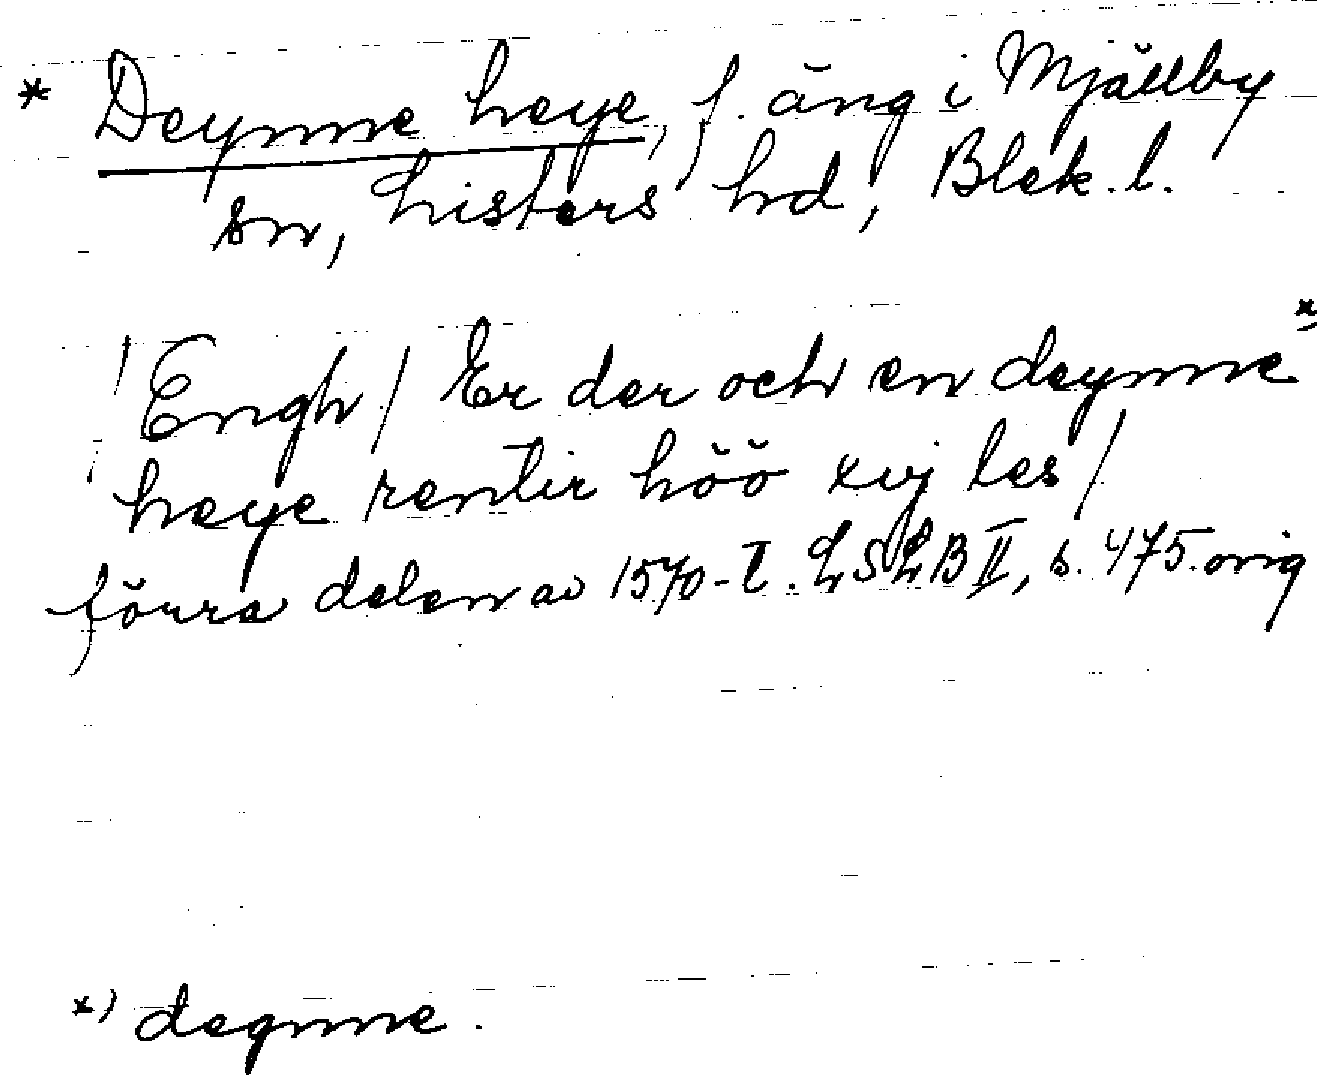 * Deynne heye, f. äng i Mjällby
sn, Listers hd, Blek. l.
/Engh/ Er der och en deynne *)
heye rentir höö xvj les/
förra delen av 1570-t. LSLB II, s. 475. orig
*) degnne.